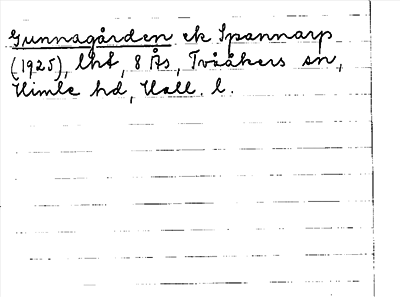 Gunnagården ek Spannarp
(1925), lht, 8 Ås, Tvååkers sn,
Himle hd, Hall. l.